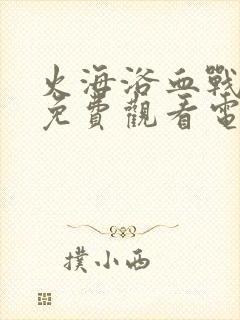 火海浴血戰
免費觀看電
撲小西